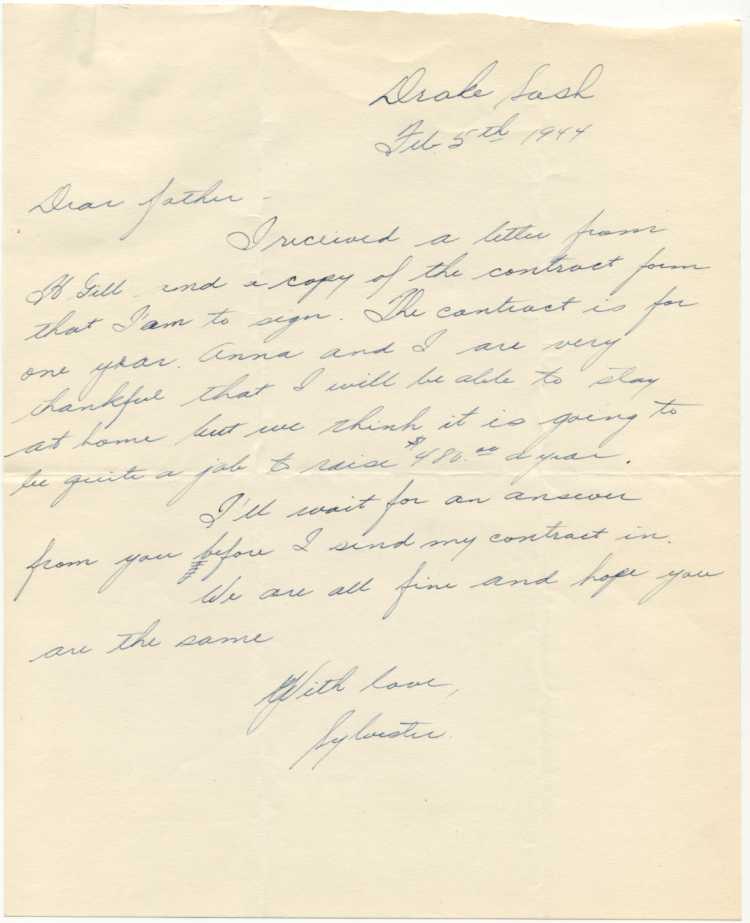 Drake Sask
Feb 5th 1944
Dear father -
I received a letter from
Gell and a copy of the contract form
that I am to sign. The contract is for
one year. Anna and I are very
thankful that I will be able to stay
at home but we think it is going to
be quite a job to raise $480.00 a year.
I'll wait for an answer
from you before I send my contract in.
We are all fine and hope you
are the same
With love,
Sylvester.